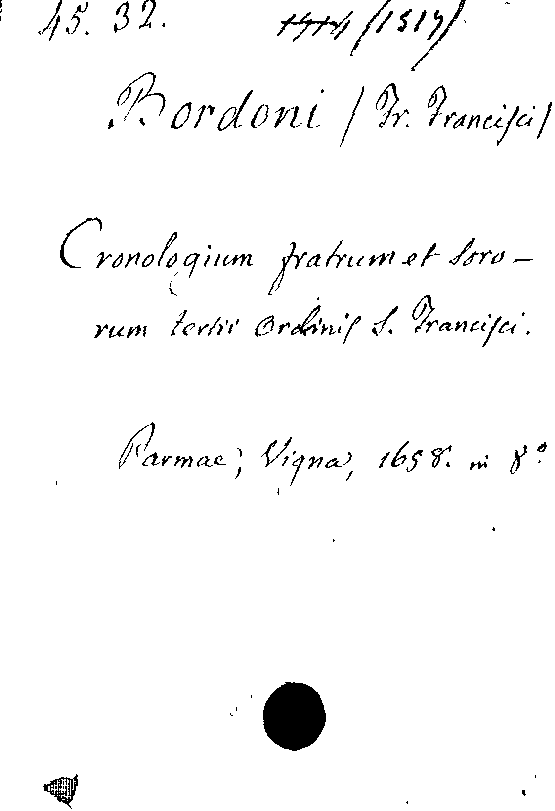 45. 32. (1517)
Bordoni (Fr. Francisci)
Cronologium fratrum et Soro-
rum tertii Ordinis S. Francisci.
Parmae, Vigna, 1658. in 8°.